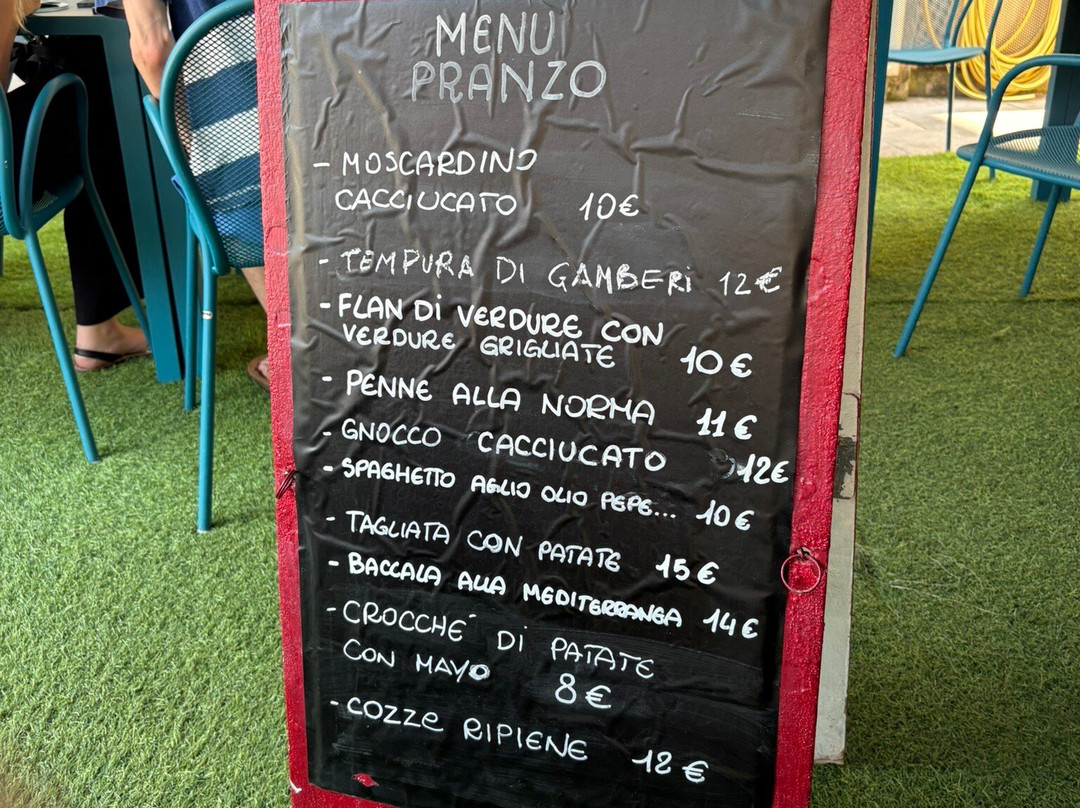 MENU
PRANZO
- MOSCARDINO
CACCIUCATO 10€
- TEMPURA DI GAMBERI 12€
- FLAN DI VERDURE CON
VERDURE GRIGLIATE 10€
- PENNE ALLA NORMA 11€
- GNOCCO CACCIUCATO 12€
- SPAGHETTO AGLIO OLIO PEPE... 10€
- TAGLIATA CON PATATE 15€
- BACCALA ALLA MEDITERRANEA 14€
- CROCCHE´ DI PATATE
CON MAYO 8€
- COZZE RIPIENE 12€